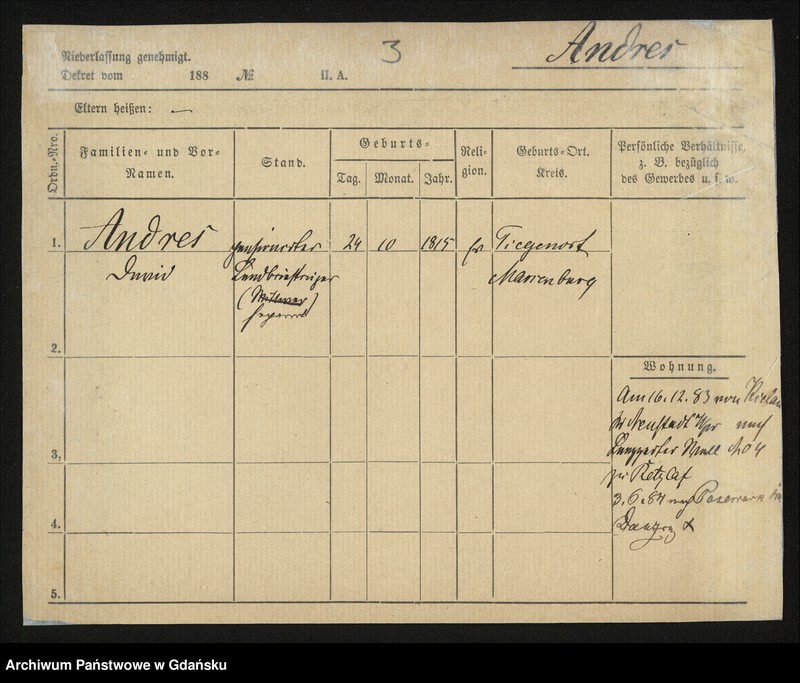 Niederlassung genehmigt.
Dekret vom 188 № II. A.
3
Andres
Eltern heißen: —
Ordn.-Nro.
Familien- und Vor-
Namen.
Stand.
Geburts-
Tag.
Monat.
Jahr.
Reli-
gion.
Geburts-Ort.
Kreis.
Persönliche Verhältnisse,
z. B. bezüglich
des Gewerbes u. s. w.
1.
Andres
David
pensionirter
Landbriefträger
(Wittwer)
separirt
24
10
1815
ev
Tiegenort
Marienburg
2.
Wohnung.
Am 16.12.83 von
Kr Neustadt W/pr nach
Langgarter Wall No 4
zu Retzlaf
3.6.84 nach Pasewark
Danzig
3.
4.
5.
Archiwum Państwowe w Gdańsku